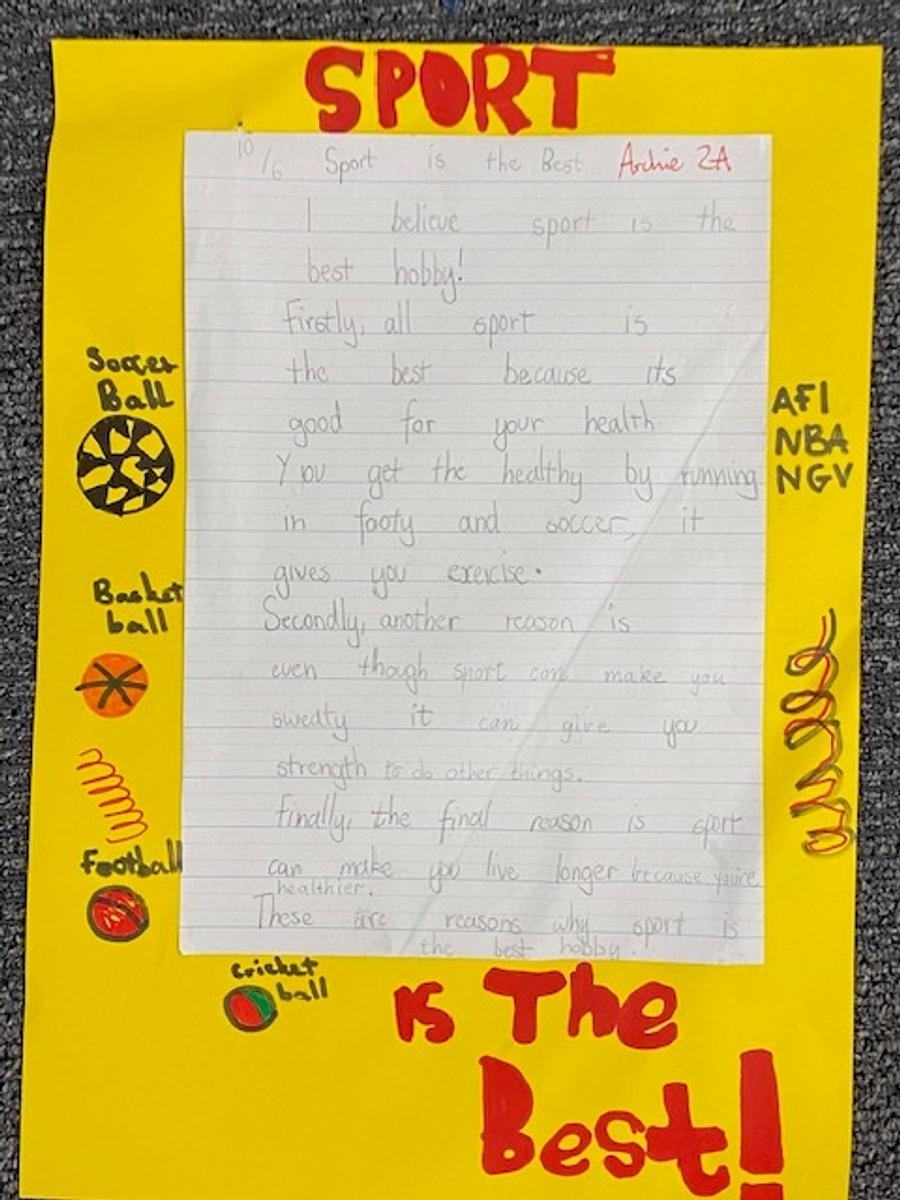 SPORT
10/6 Sport is the Best Archie 2A
I believe sport is the
best hobby!
Firstly, all sport is
the best because its
good for your health.
You get the healthy by running
in footy and soccer, it
gives you exercise.
Secondly, another reason is
even though sport can make you
sweaty it can give you
strength to do other things.
Finally, the final reason is sport
can make you live longer because you're
healthier.
These are reasons why sport is
the best hobby.
Soccer
Ball
Basket
ball
Football
Cricket
ball
AFl
NBA
NGV
is The
Best!